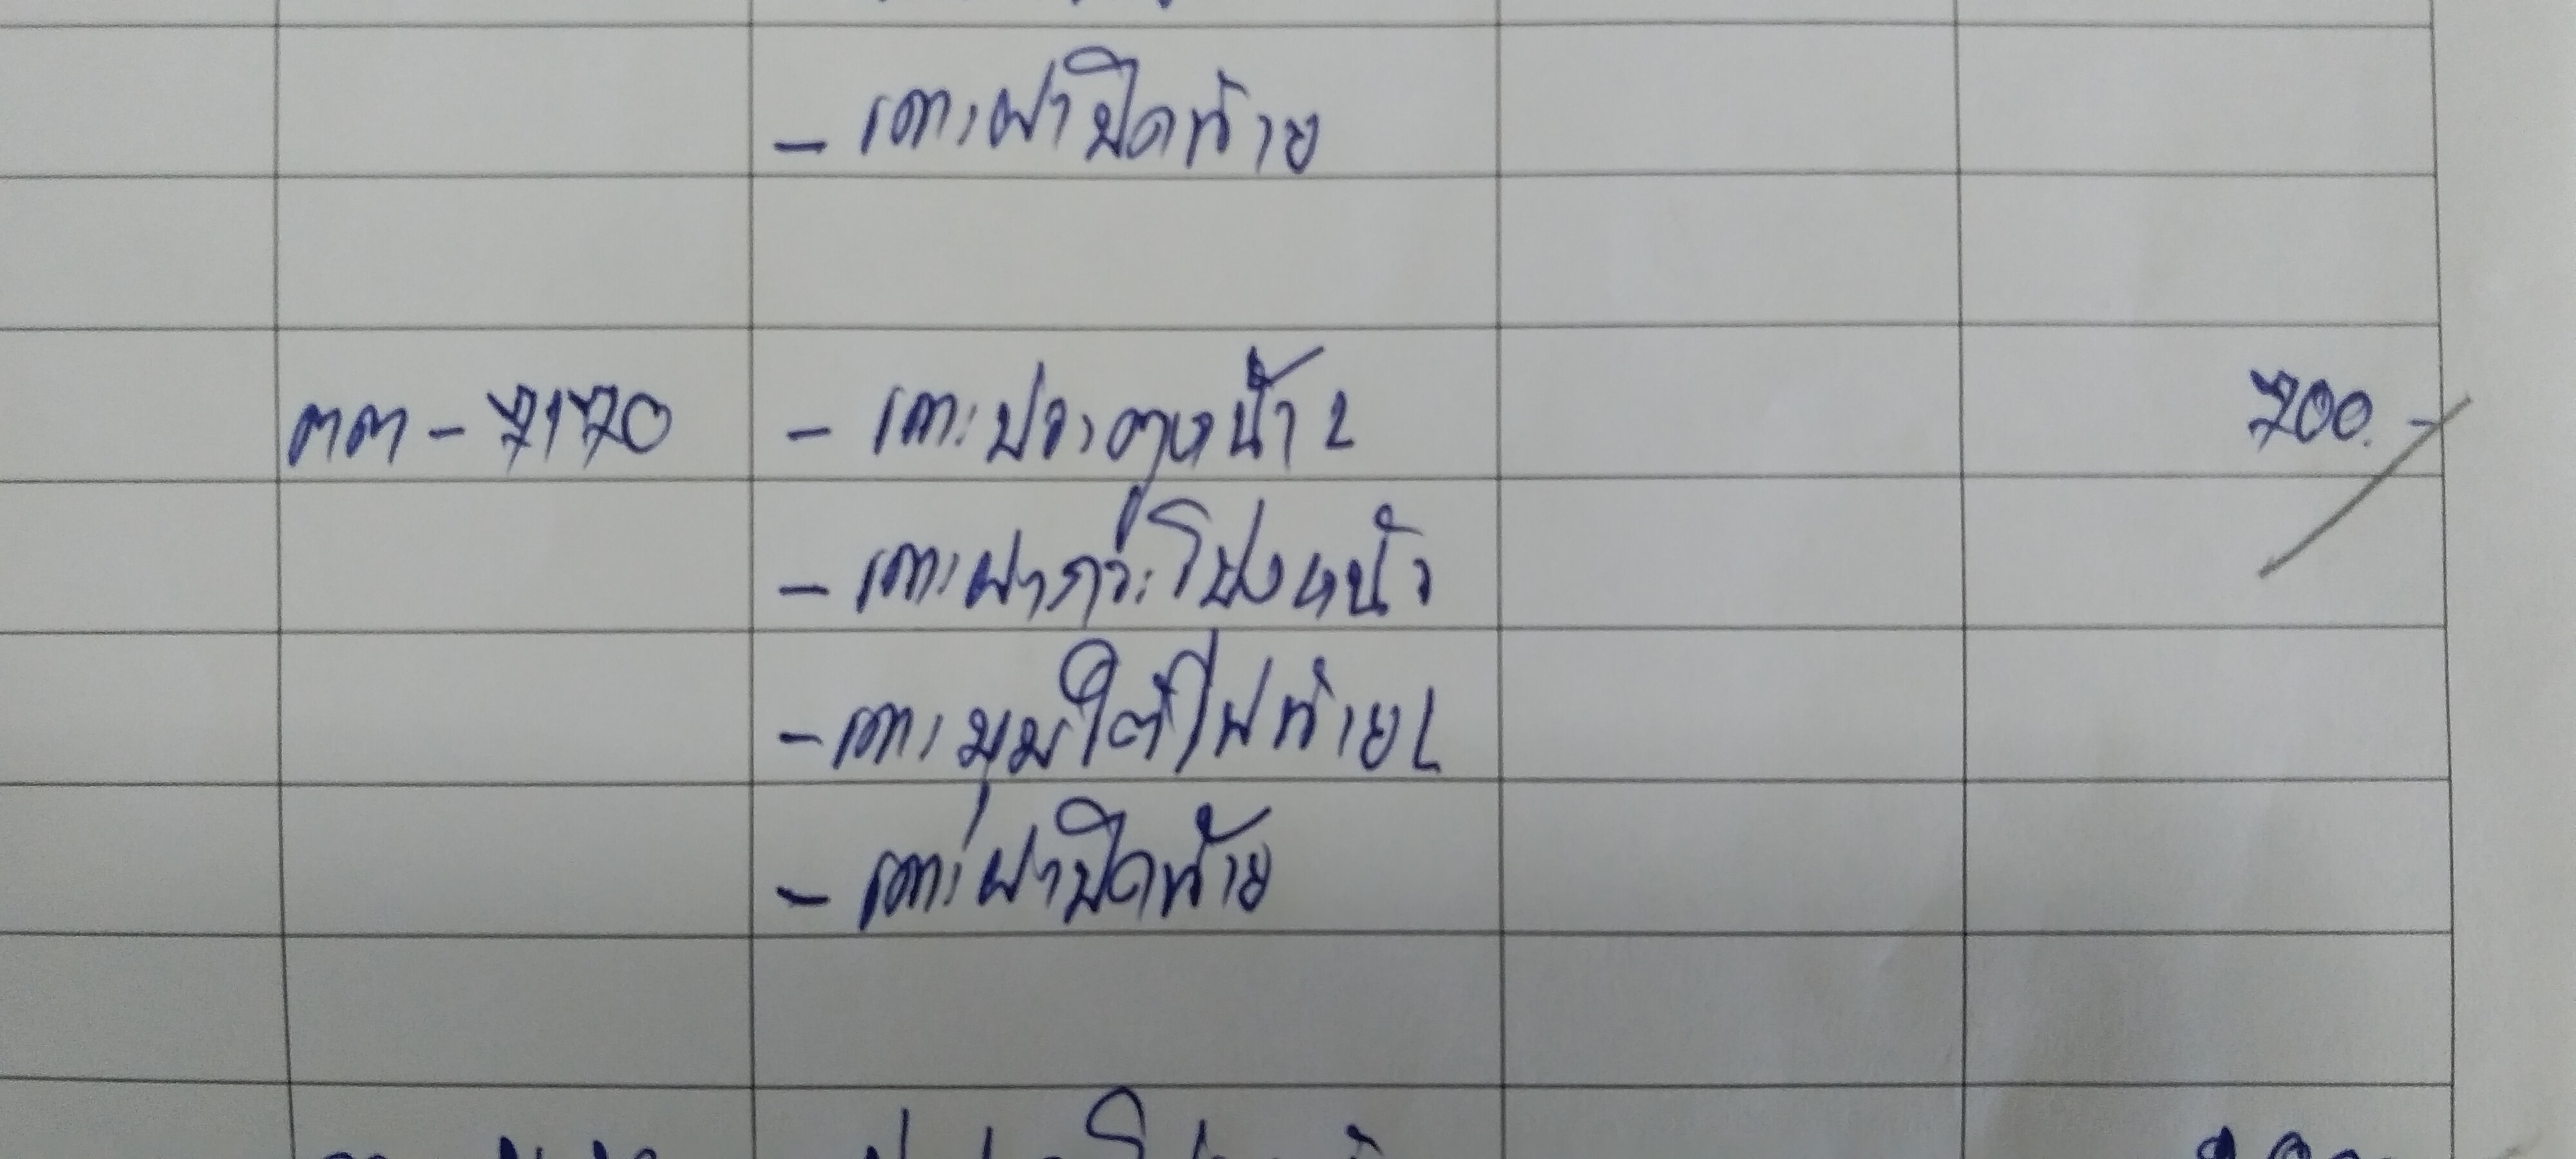 - เคาะฝาปิดท้าย
ฅฅ - 7170 - เคาะประตูหน้า L 700.-
- เคาะฝากระโปรงหน้า
- เคาะมุมใต้ไฟท้าย L
- เคาะฝาปิดท้าย